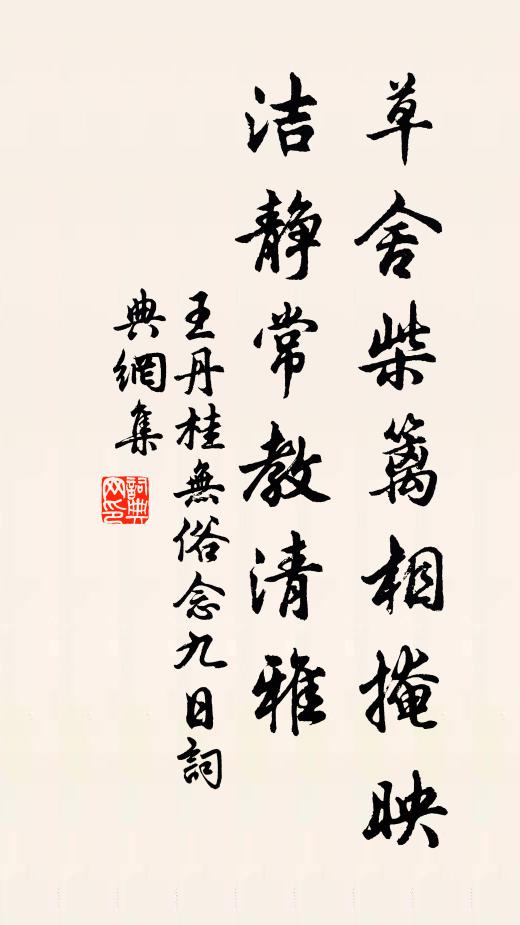 草舍柴篱相掩映
洁静常教清雅
王丹桂無俗念九日詞
典網集
詞典网印